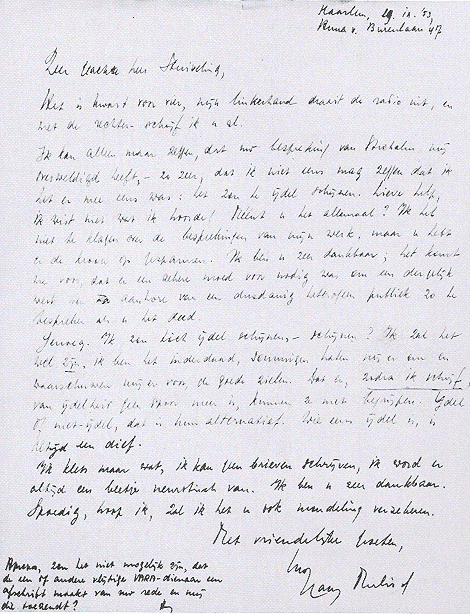 Haarlem, 29.ix.'53,
Anna v. Burenlaan 47
Zeer geachte heer Stuiveling,
Het is kwart voor vier, mijn linkerhand draait de radio uit, en
met de rechter- schrijf ik u al.
Ik kan alleen maar zeggen, dat uw bespreking van Archibald mij
overweldigd heeft, - zo zeer, dat ik niet eens mag zeggen dat ik
het er mee eens was: het zou te ijdel schijnen. Lieve help,
ik wist niet wat ik hoorde! Meent u het allemaal? Ik heb
niet te klagen over de besprekingen van mijn werk, maar u hebt
er de kroon op gespannen. Ik ben u zeer dankbaar; het komt
me voor, dat er een zekere moed voor nodig was om een dergelijk
werk ten aanhore van een dusdanig heterogeen publiek zo te
bespreken als u het deed.
Genoeg. Ik zou toch ijdel schijnen, - schijnen? Ik zal het
wel zijn, ik ben het inderdaad, sommigen halen mij er om en
waarschuwen mij er voor, de goede zielen. Dat er, zodra ik schrijf,
van ijdelheid geen spoor meer is, kunnen ze niet begrijpen. IJdel
of niet-ijdel, dat is hun alternatief. Wie eens ijdel is, is
altijd een dief.
Ik klets maar wat, ik kan geen brieven schrijven, ik word er
altijd een beetje neurotisch van. Ik ben u zeer dankbaar.
Spoedig, hoop ik, zal ik het u ook mondeling verzekeren.
Met vriendelijke groeten,
Uw
Harry Mulisch
zou het niet mogelijk zijn, dat
de een of andere vlijtige VARA-dienaar een
afschrift maakt van uw rede en mij
die toezendt?